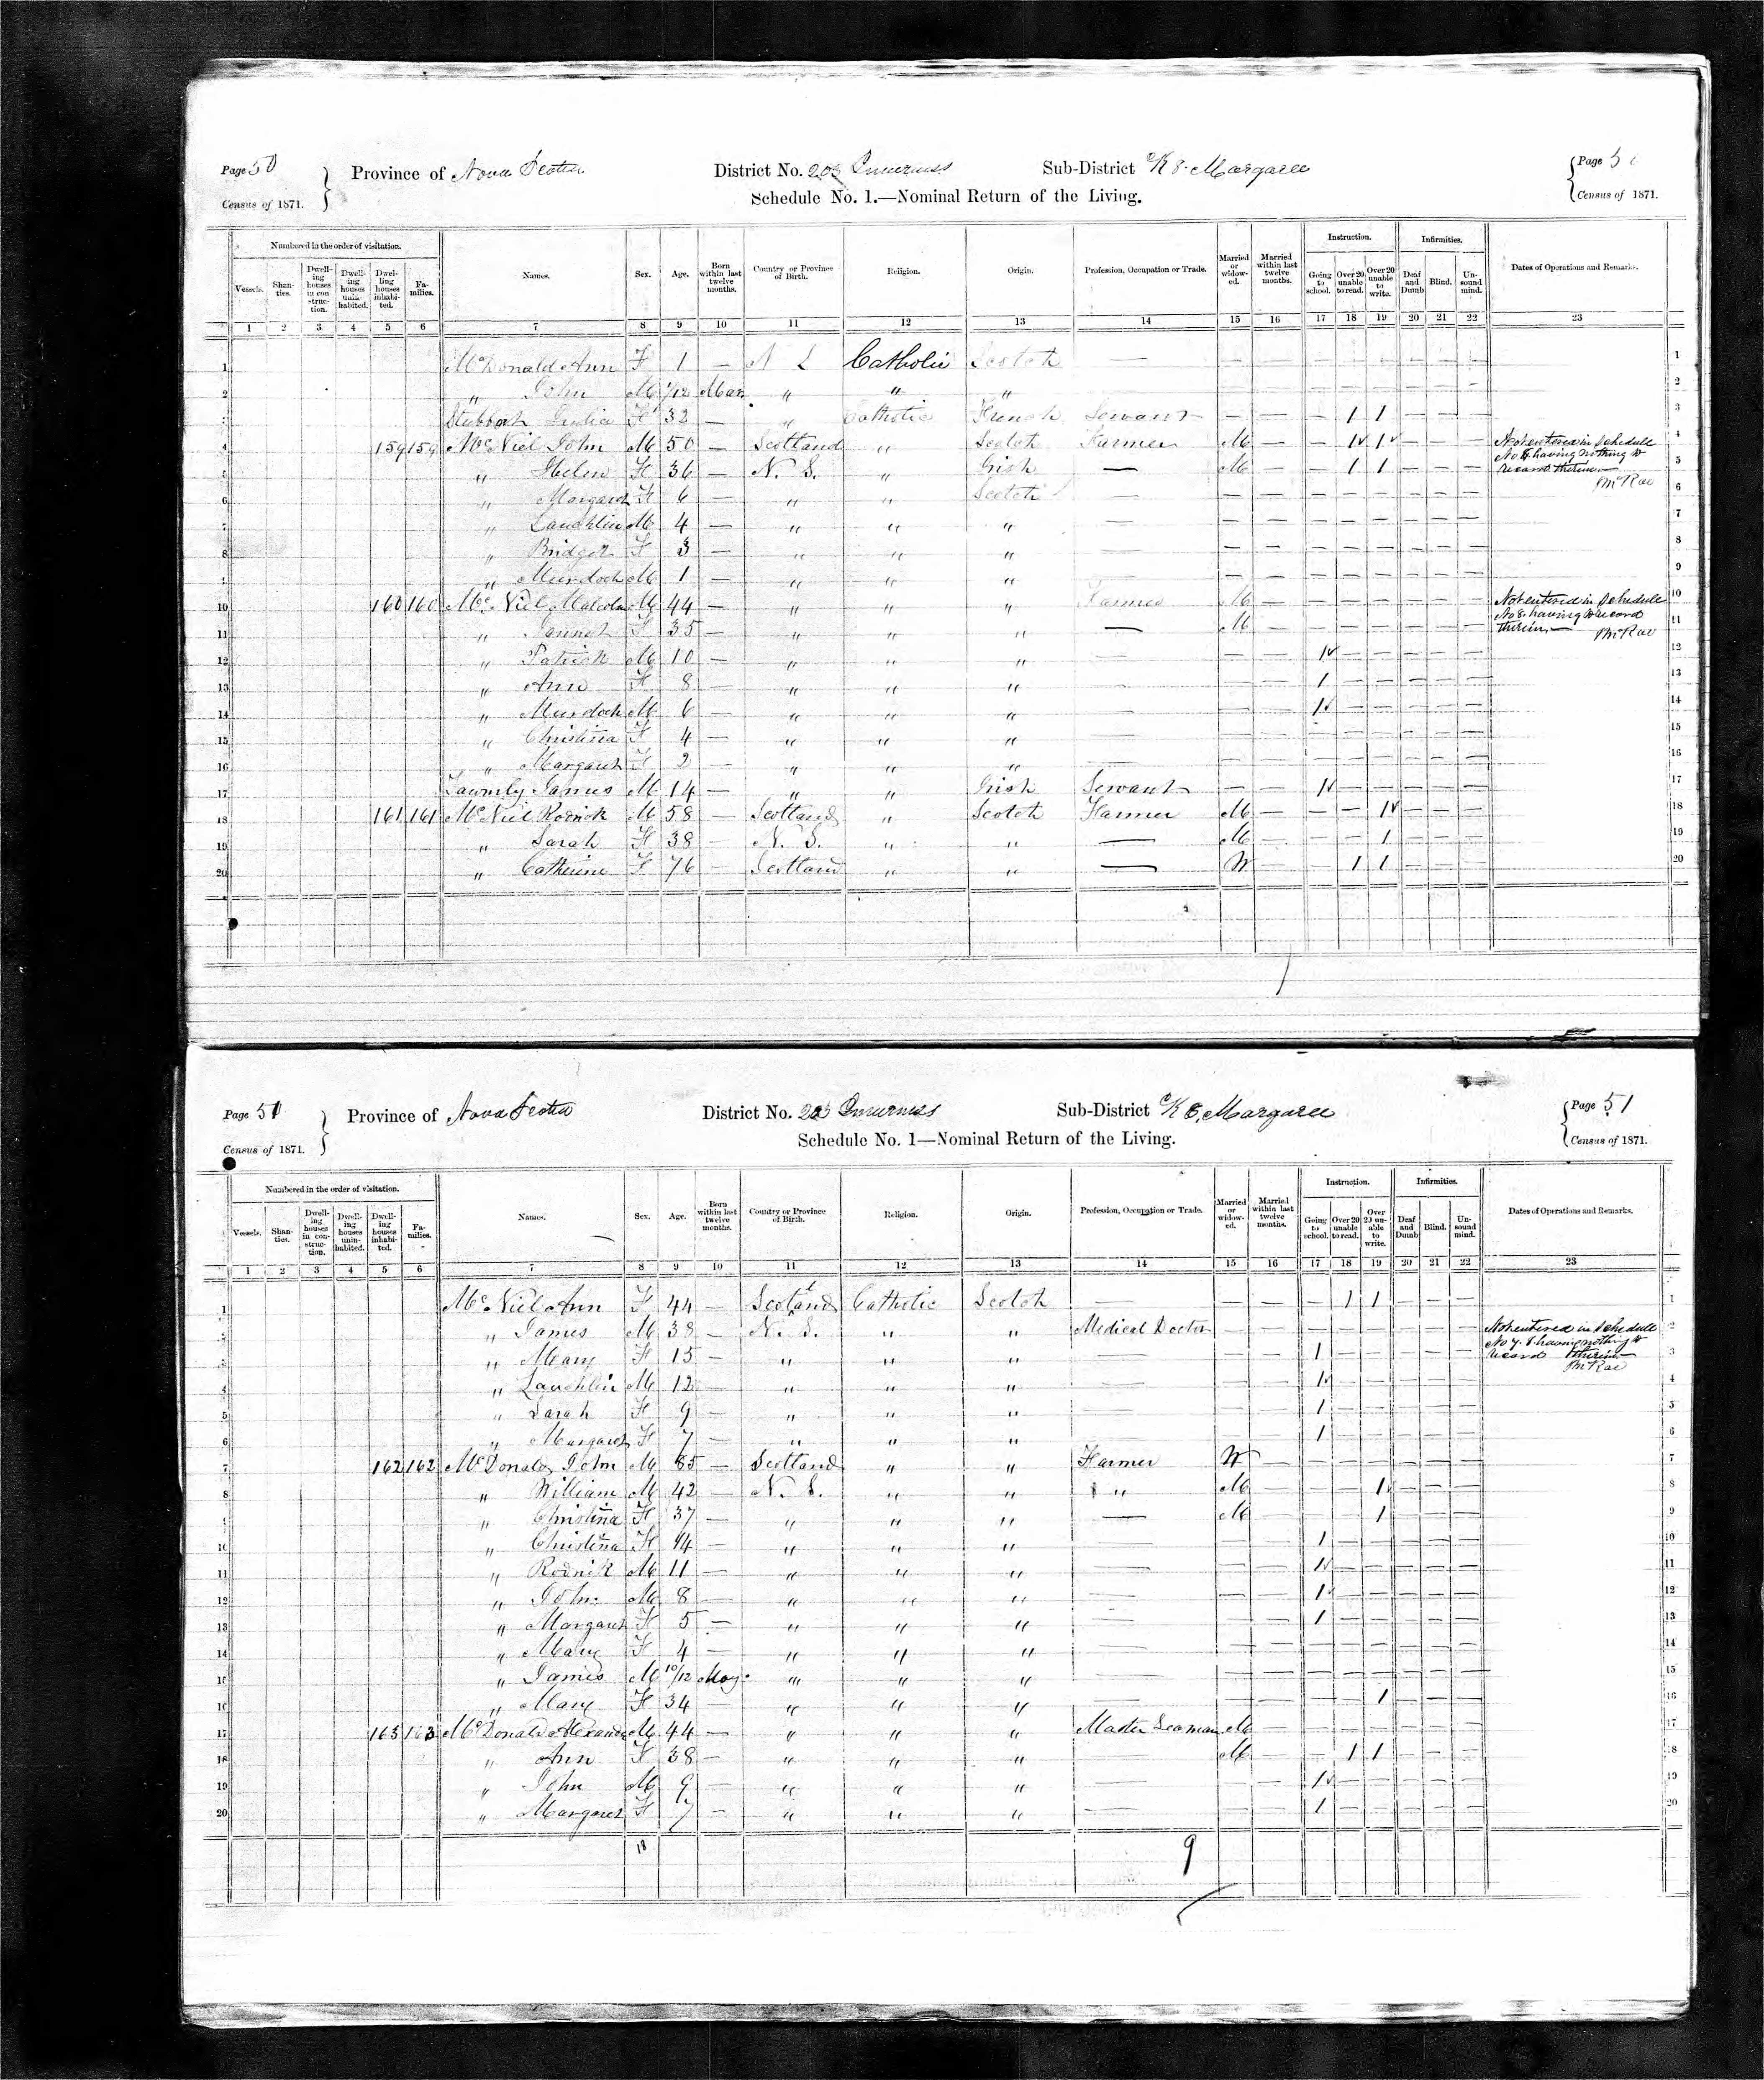 Page 50 Province of Nova Scotia District No. 203 Inverness Sub-District K 8. Margaree Page 5
Census of 1871. Schedule No. 1.—Nominal Return of the Living. Census of 1871.
Numbered in the order of visitation. Instruction. Infirmities.
Vessels. Shanties. Dwelling houses in construction. Dwelling houses uninhabited. Dwelling houses inhabited. Families. Names. Sex. Age. Born within last twelve months. Country or Province of Birth. Religion. Origin. Profession, Occupation or Trade. Married or widowed. Married within last twelve months. Going to school. Over 20 unable to read. Over 20 unable to write. Deaf and Dumb Blind. Unsound mind. Dates of Operations and Remarks.
1 2 3 4 5 6 7 8 9 10 11 12 13 14 15 16 17 18 19 20 21 22 23
1 McDonald Ann F 1 — N S Catholic Scotch — — — — — — — — — 1
2 " John M 1/12 Mar. " " " — — — — — — — — — 2
3 Julia F 32 — " Catholic French Servant — — — 1 1 — — — 3
4 159 159 McNiel John M 50 — Scotland " Scotch Farmer M — — 1 1 — — — Not entered in Schedule 4
5 " Helen F 36 — N. S. " Irish — M — — 1 1 — — — No 8 having nothing to record therein— 5
6 " Margaret F 6 — " " Scotch — — — — — — — — — McRae 6
7 " Lauchlin M 4 — " " " — — — — — — — — — 7
8 " Bridget F 3 — " " " — — — — — — — — — 8
9 " Murdoch M 1 — " " " — — — — — — — — — 9
10 160 160 McNiel Malcolm M 44 — " " " Farmer M — — — — — — — Not entered in Schedule 10
11 " Jannet F 35 — " " " — M — — — — — — — No 8. having to record therein— McRae 11
12 " Patrick M 10 — " " " — — — 1 — — — — — 12
13 " Ann F 8 — " " " — — — 1 — — — — — 13
14 " Murdoch M 6 — " " " — — — 1 — — — — — 14
15 " Christina F 4 — " " " — — — — — — — — — 15
16 " Margaret F 2 — " " " — — — — — — — — — 16
17 James M 14 — " " Irish Servant — — 1 — — — — — 17
18 161 161 McNiel Rodrick M 58 — Scotland " Scotch Farmer M — — — 1 — — — 18
19 " Sarah F 38 — N. S. " " — M — — — 1 — — — 19
20 " Catherine F 76 — Scotland " " — W — — 1 1 — — — 20
Page 51 Province of Nova Scotia District No. 203 Inverness Sub-District K 8. Margaree Page 51
Census of 1871. Schedule No. 1—Nominal Return of the Living. Census of 1871.
Numbered in the order of visitation. Instruction. Infirmities.
Vessels. Shanties. Dwelling houses in construction. Dwelling houses uninhabited. Dwelling houses inhabited. Families. Names. Sex. Age. Born within last twelve months. Country or Province of Birth. Religion. Origin. Profession, Occupation or Trade. Married or widowed. Married within last twelve months. Going to school. Over 20 unable to read. Over 20 unable to write. Deaf and Dumb Blind. Unsound mind. Dates of Operations and Remarks.
1 2 3 4 5 6 7 8 9 10 11 12 13 14 15 16 17 18 19 20 21 22 23
1 McNiel Ann F 44 — Scotland Catholic Scotch — — — — 1 1 — — — 1
2 " James M 38 — N. S. " " Medical Doctor — — — — — — — — Not entered in Schedule 2
3 " Mary F 15 — " " " — — — 1 — — — — — No 7. 8 having nothing to record therein— McRae 3
4 " Lauchlin M 12 — " " " — — — 1 — — — — — 4
5 " Sarah F 9 — " " " — — — 1 — — — — — 5
6 " Margaret F 7 — " " " — — — 1 — — — — — 6
7 162 162 McDonald John M 85 — Scotland " " Farmer W — — — — — — — 7
8 " William M 42 — N. S. " " " M — — — 1 — — — 8
9 " Christina F 37 — " " " — M — — — 1 — — — 9
10 " Christina F 14 — " " " — — — 1 — — — — — 10
11 " Rodrick M 11 — " " " — — — 1 — — — — — 11
12 " John M 8 — " " " — — — 1 — — — — — 12
13 " Margaret F 5 — " " " — — — 1 — — — — — 13
14 " Mary F 4 — " " " — — — — — — — — — 14
15 " James M 10/12 May. " " " — — — — — — — — — 15
16 " Mary F 34 — " " " — — — — — 1 — — — 16
17 163 163 McDonald Alexander M 44 — " " " Master Seaman M — — — — — — — 17
18 " Ann F 38 — " " " — M — — 1 1 — — — 18
19 " John M 9 — " " " — — — 1 — — — — — 19
20 " Margaret F 7 — " " " — — — 1 — — — — — 20
18 9